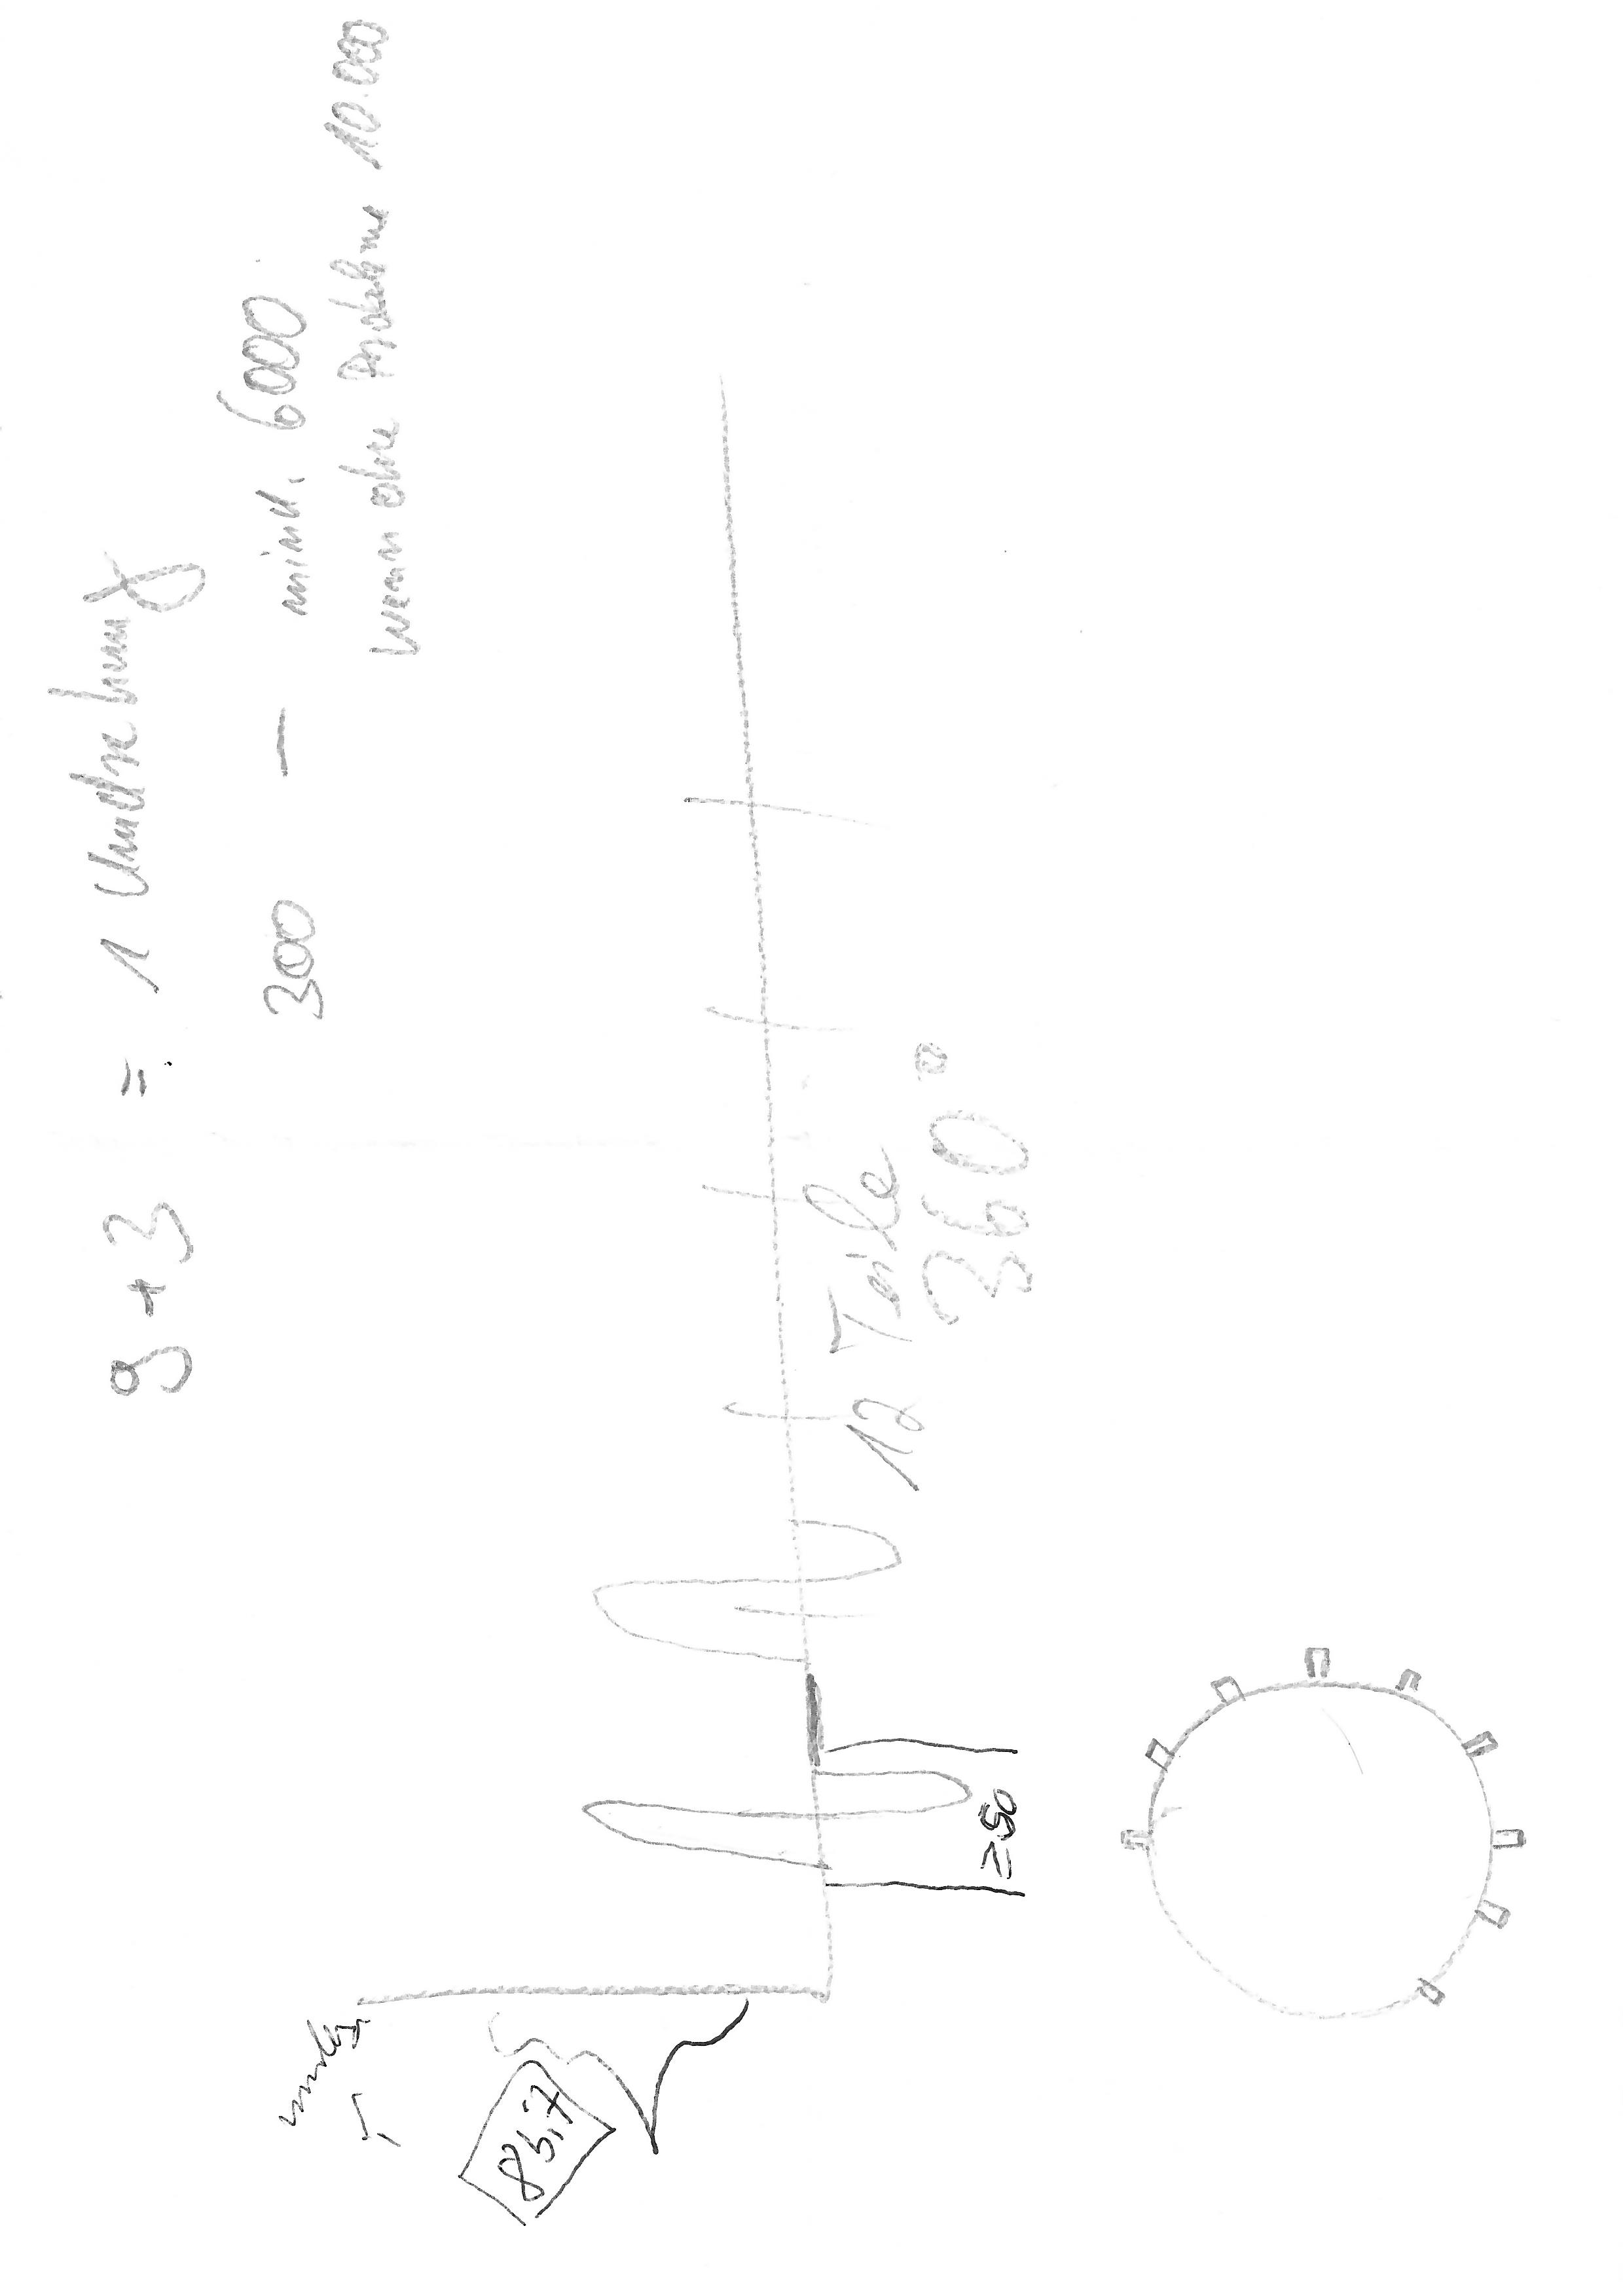 9 + 3 = 1 Umdrehung
300 — mind. 6000
wenn ohne Probleme 10.000
83,7
12 Teile
360°
≥50